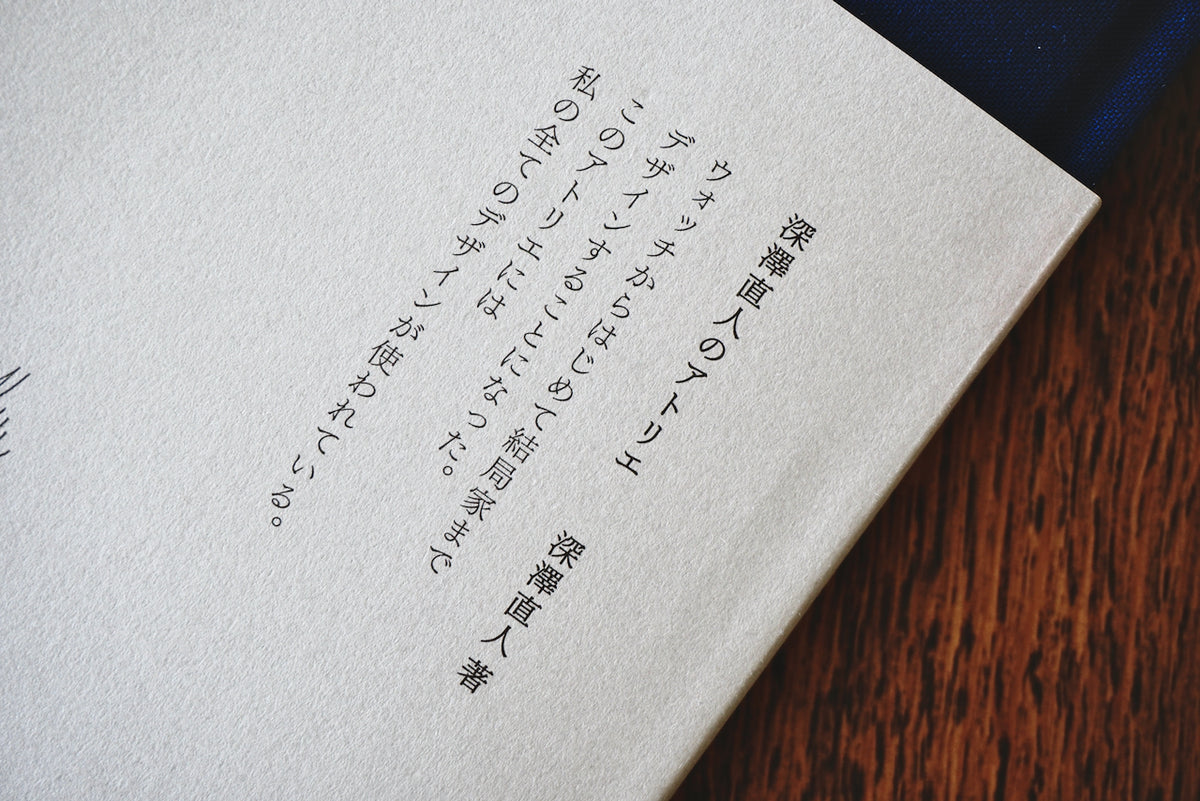 深澤直人のアトリエ
深澤直人 著
ウォッチからはじめて結局家まで
デザインすることになった。
このアトリエには
私の全てのデザインが使われている。